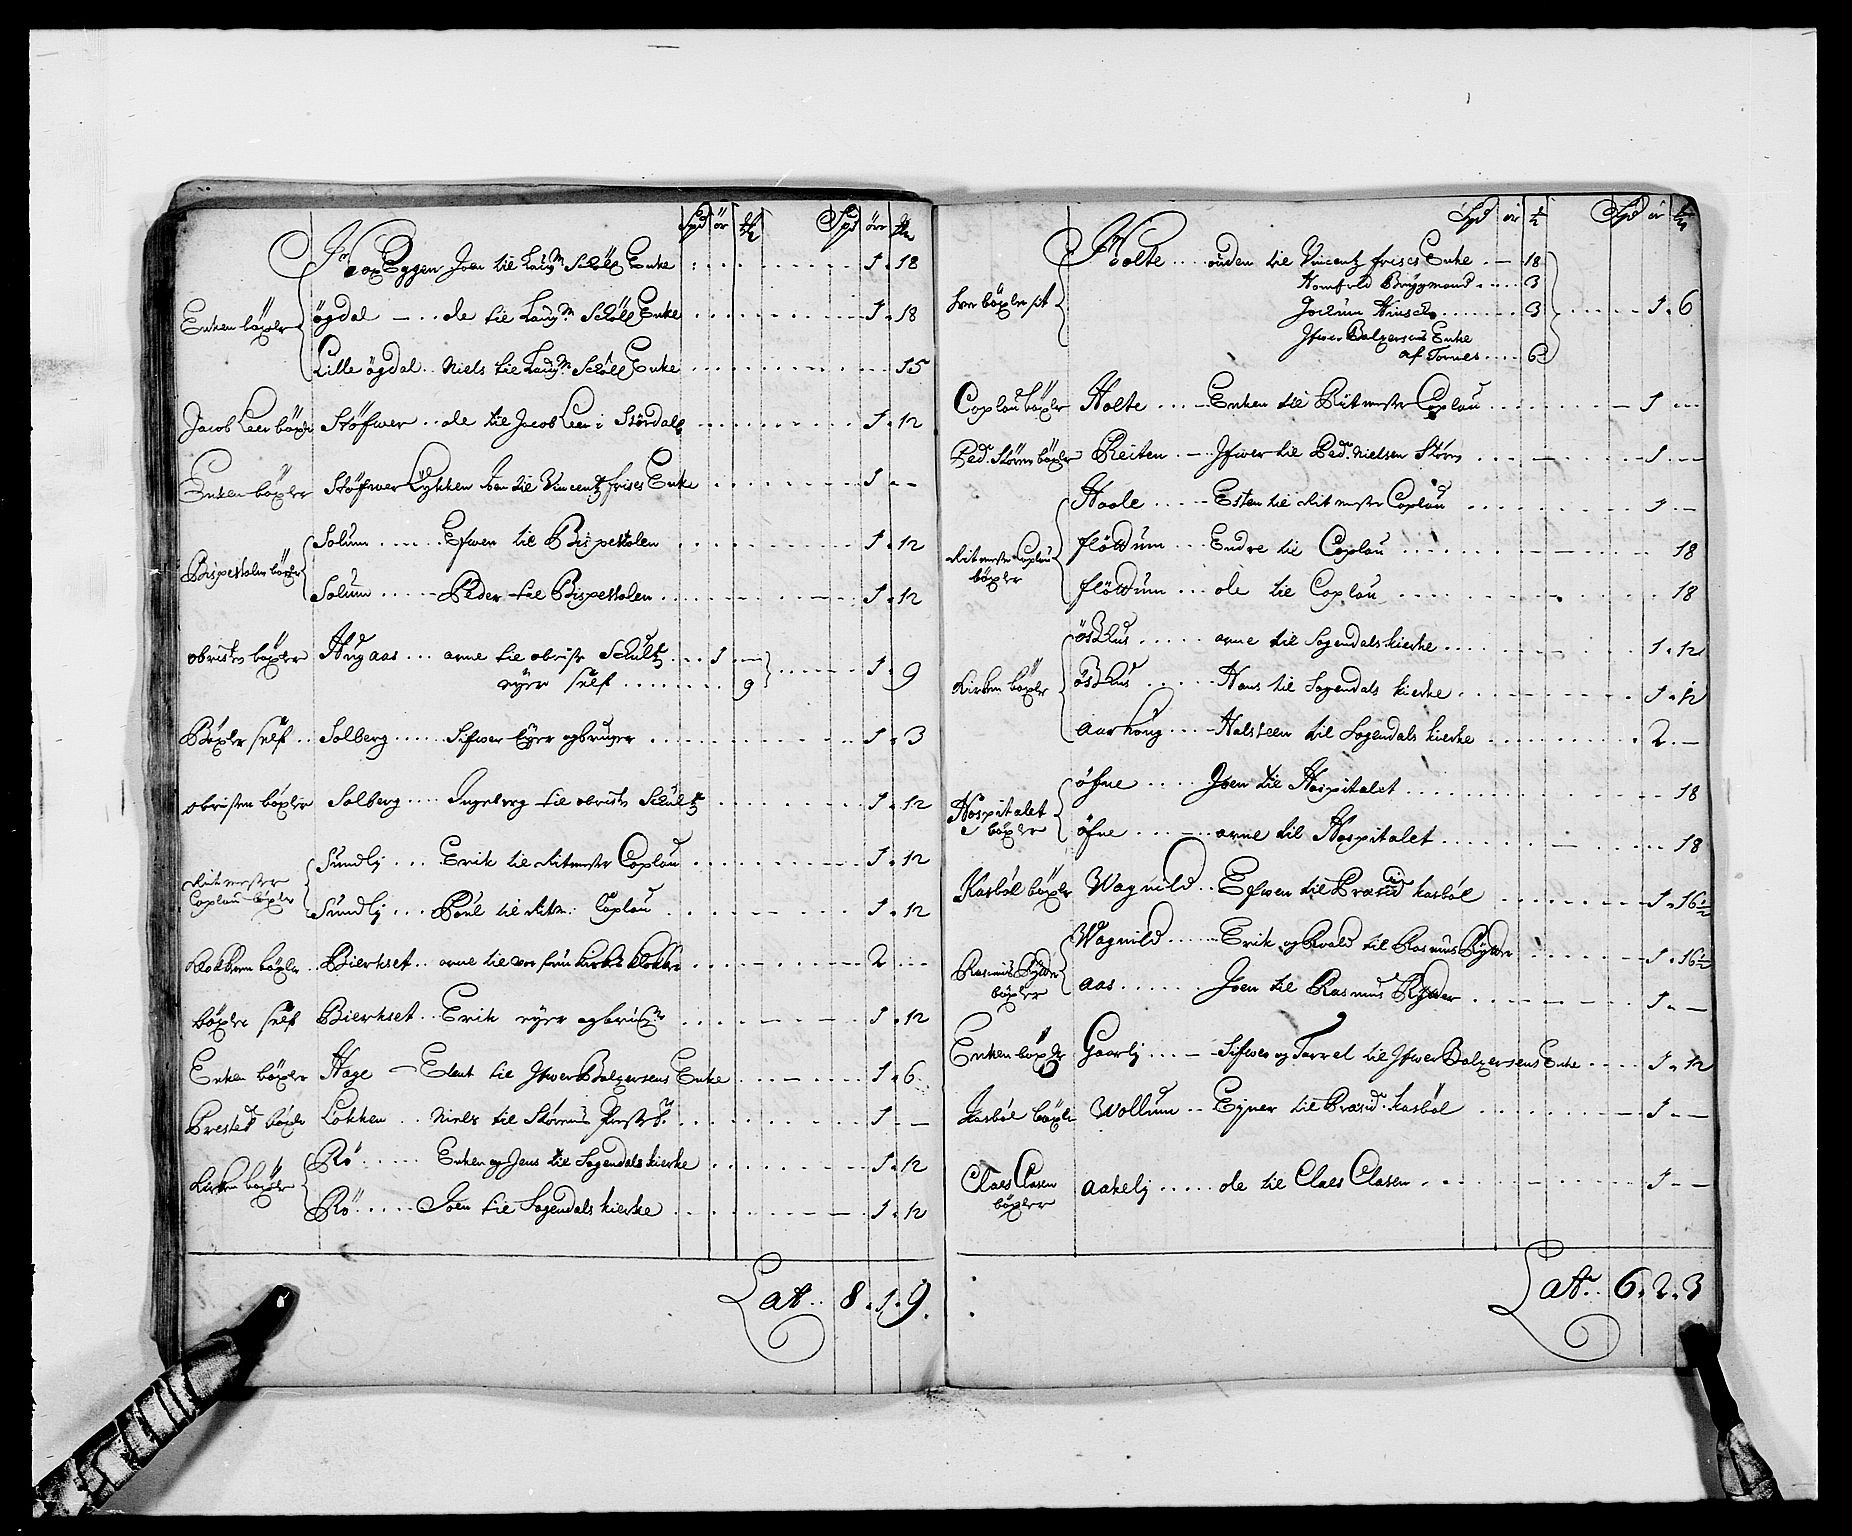 Spd ör
Spd ör
Eggen Joen til Laugm Schöll Enke : 1 . 18
Enken böxler ögdal ole til Laugm Schöll Enke 1 . 18
Lille ögdal Niels til Laugm Schöll Enke 15
Jacob Leer böxler Stöfwer ole til Jacob Leer i Stördall 1 . 12
Enken böxler Stöfwer Lykken Joen til Vincentz frises Enke 1
Bispestolen böxler
Solum Efwen til Bispestolen 1 . 12
Solum Peder til Bispestolen 1 . 12
obristen böxler Hugaas arne til obriste Schultz 1
eyer self 9 1 . 9
Böxler self Solberg Sifwer Eyer og bruger 1 . 3
obristen böxler Solberg Ingeborg til obriste Schultz 1 . 12
Ritmester Coplau böxler
Sundlj Erik til Ritmestr Coplau 1 . 12
Sundlj Poul til Ritm: Coplau 1 . 12
Klokkeren böxler Bierkset arne til 2
böxler self Bierkset Erik eyer og 1 . 12
Enken böxler Hage Elent til Ifwer Balzersens Enke 1 . 6
Presten böxler Lökken Niels til Störens 1
Kirken böxler
Rö Enken og Jens til Sogendals kierke 1 . 12
Rö Joen til Sogendals kierke 1 . 12
Lat. 8 . 1 . 9 .
Spd ör
Spd ör
Holte til Vincentz frises Enke 18
Brüggmand 3
böxler
Jochum 3 1 . 6
Ifwer Balzersens Enke
af Tornes 6
Coplau böxler Holte Enken til Ritmester Coplau 1
Ped. Stören böxler Reiten Ifwer til Ped. Nielsen Stören 1
Ritmester Coplau böxler
Haale Esten til Ritmestr Coplau 1
flöttum Endre til Coplau 18
flöttum ole til Coplau 18
Kirken böxler
ösHus arne til Sogendals kierke 1 . 12
ösHus Hans til Sogendals kierke 1 . 12
aarhoug Halsteen til Sogendals kierke 2
Hospitalet böxler
öfne Joen til Hospitalet 18
öfne arne til Hospitalet 18
Kasböl böxler Wagnild Efwen til Præsid Kasböl 1 . 16½
Rasmus böxler
Wagnild Erik og til Rasmus 1 . 16½
aas Joen til Rasmus 1
Enken böxler Gaarlj Sifwer og Tarrel til Ifwer Balzersens Enke 1 . 12
Kasböl böxler Wollum Eyner til Præsid. Kasböl 1
Claes Clasen böxler aakelj ole til Claes Clasen 1
Lat. 6 . 2 . 3